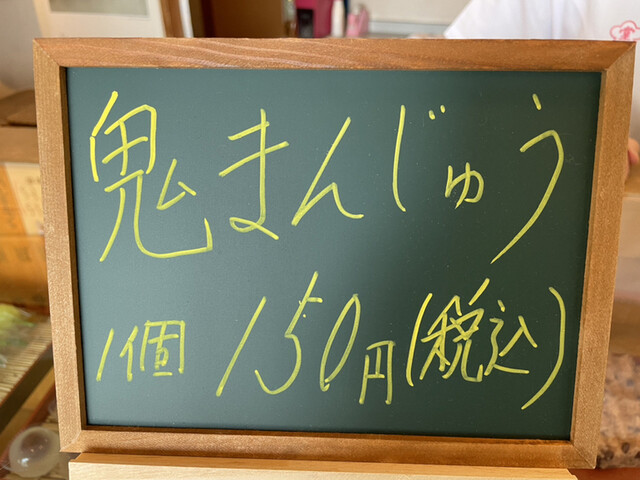 鬼まんじゅう
1個 150円(税込)